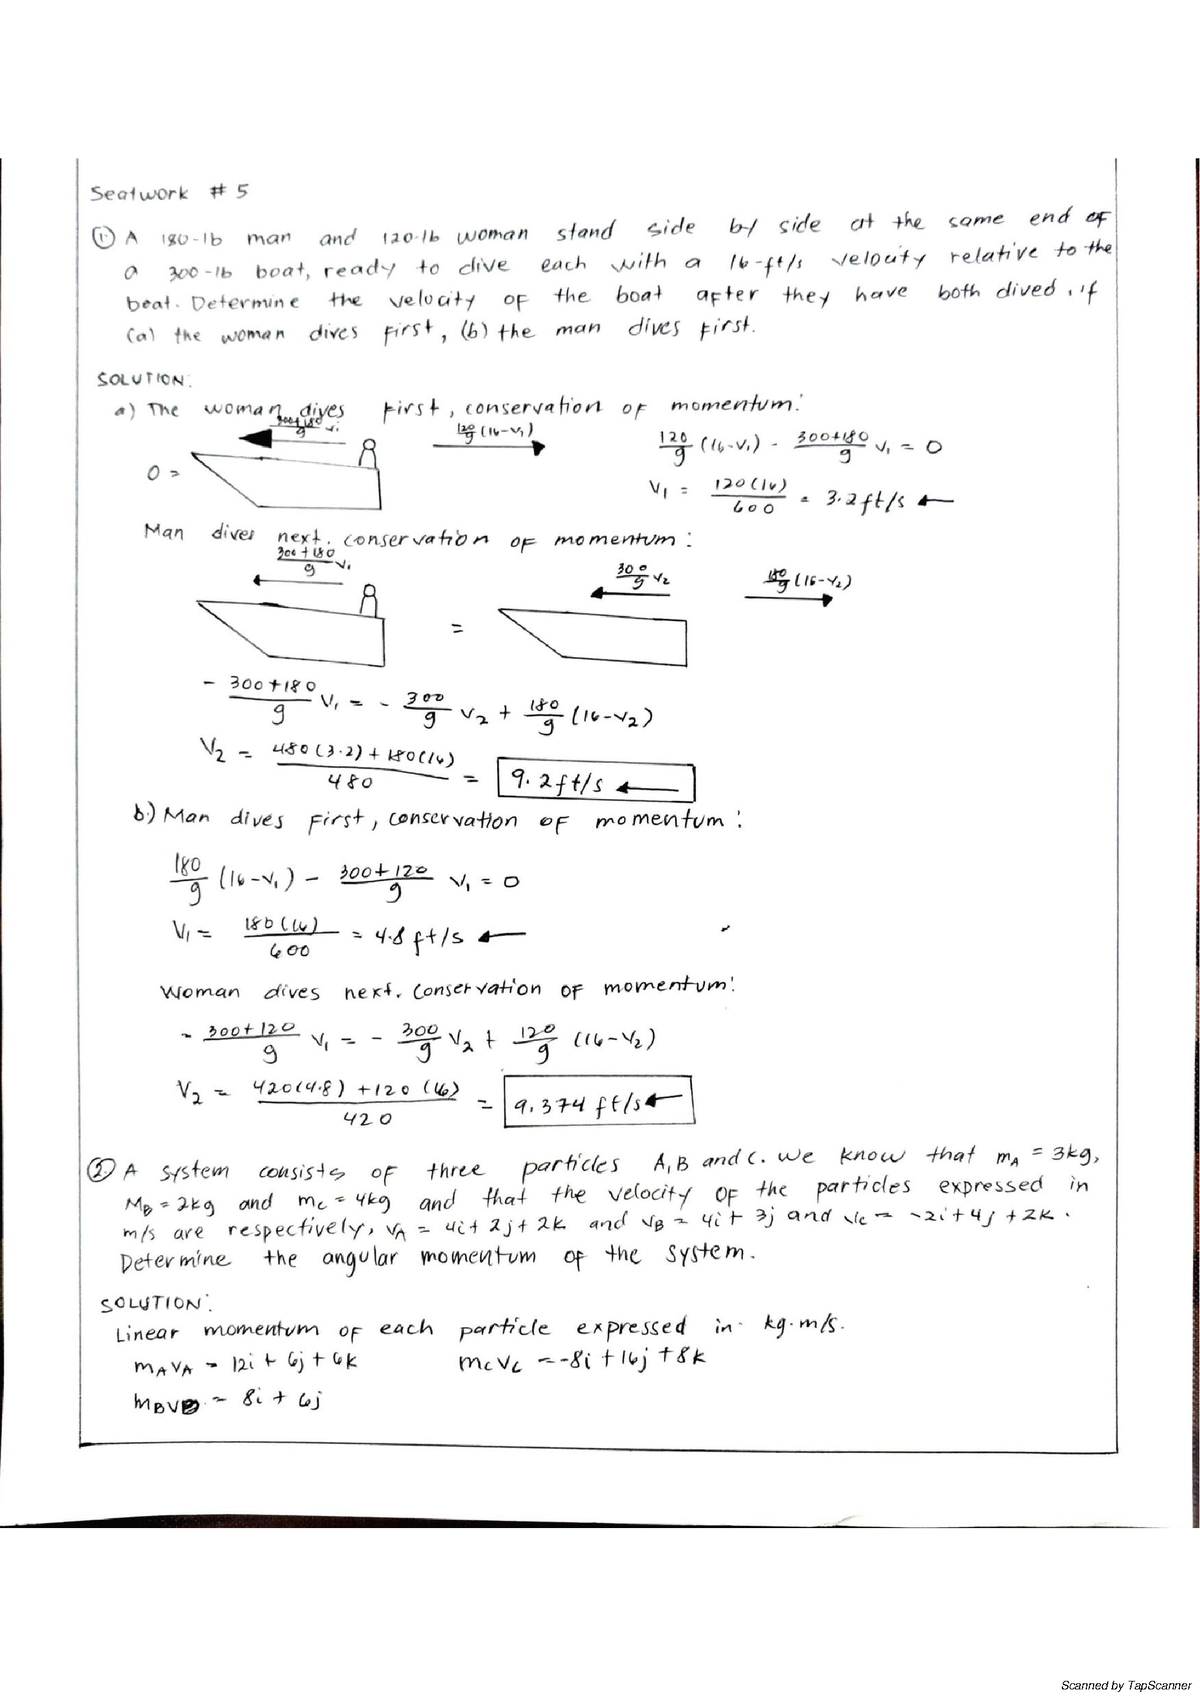 Seatwork # 5
① A 180-lb man and 120-lb woman stand side by side at the same end of
a 300-lb boat, ready to dive each with a 16-ft/s velocity relative to the
boat. Determine the velocity of the boat after they have both dived, if
(a) the woman dives first, (b) the man dives first.
SOLUTION:
a) The woman dives first, conservation of momentum:
300+180/g v₁
120/g (16-v₁)
120/g (16-v₁) - 300+180/g v₁ = 0
0 =
v₁ = 120(16)/600 = 3.2 ft/s ←
Man dives next. conservation of momentum:
300+180/g v₁
300/g v₂
180/g (16-v₂)
=
- 300+180/g v₁ = - 300/g v₂ + 180/g (16-v₂)
V₂ = 480(3.2)+180(16)/480 = 9.2 ft/s ←
b.) Man dives first, conservation of momentum:
180/g (16-v₁) - 300+120/g v₁ = 0
V₁ = 180(16)/600 = 4.8 ft/s ←
Woman dives next. conservation of momentum:
- 300+120/g v₁ = - 300/g v₂ + 120/g (16-v₂)
V₂ = 420(4.8)+120(16)/420 = 9.374 ft/s ←
② A system consists of three particles A, B and C. we know that mA = 3kg,
MB = 2kg and mc = 4kg and that the velocity of the particles expressed in
m/s are respectively, vA = 4i + 2j + 2k and vB = 4i + 3j and vc = -2i + 4j + 2k.
Determine the angular momentum of the system.
SOLUTION:
Linear momentum of each particle expressed in kg·m/s.
mAvA = 12i + 6j + 6k mcvc = -8i + 16j + 8k
mBvB = 8i + 6j
Scanned by TapScanner